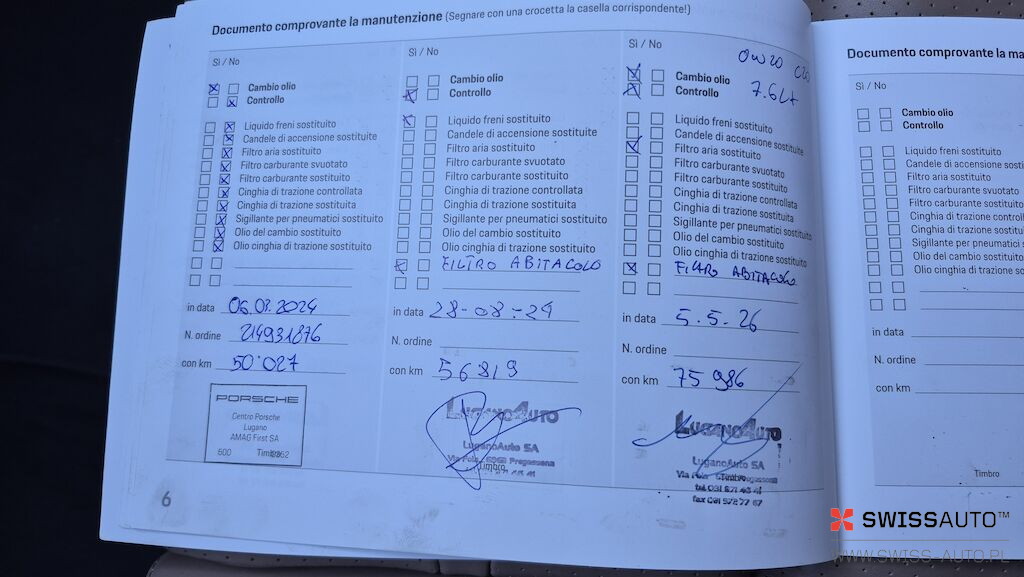 Documento comprovante la manutenzione (Segnare con una crocetta la casella corrispondente!)
Sì / No
Cambio olio
Controllo
Liquido freni sostituito
Candele di accensione sostituite
Filtro aria sostituito
Filtro carburante svuotato
Filtro carburante sostituito
Cinghia di trazione controllata
Cinghia di trazione sostituita
Sigillante per pneumatici sostituito
Olio del cambio sostituito
Olio cinghia di trazione sostituito
in data 06.02.2024
N. ordine 214931876
con km 50'027
PORSCHE
Centro Porsche
Lugano
AMAG First SA
600 Timbro
6
Sì / No
Cambio olio
Controllo
Liquido freni sostituito
Candele di accensione sostituite
Filtro aria sostituito
Filtro carburante svuotato
Filtro carburante sostituito
Cinghia di trazione controllata
Cinghia di trazione sostituita
Sigillante per pneumatici sostituito
Olio del cambio sostituito
Olio cinghia di trazione sostituito
FILTRO ABITACOLO
in data 28-08-24
N. ordine
con km 56819
LUGANOAUTO
LuganoAuto SA
Timbro
Sì / No
0W20 C20
Cambio olio
Controllo 7.6Lt
Liquido freni sostituito
Candele di accensione sostituite
Filtro aria sostituito
Filtro carburante svuotato
Filtro carburante sostituito
Cinghia di trazione controllata
Cinghia di trazione sostituita
Sigillante per pneumatici sostituito
Olio del cambio sostituito
Olio cinghia di trazione sostituito
FILTRO ABITACOLO
in data 5.5.26
N. ordine
con km 75986
LUGANOAUTO
LuganoAuto SA
Timbro
Documento comprovante la ma
Sì / No
Cambio olio
Controllo
Liquido freni sostituito
Candele di accensione sostit
Filtro aria sostituito
Filtro carburante svuotato
Filtro carburante sostituito
Cinghia di trazione controlla
Cinghia di trazione sostituit
Sigillante per pneumatici s
Olio del cambio sostituito
Olio cinghia di trazione sost
in data
N. ordine
con km
Timbro
SWISSAUTO™
WWW.SWISS-AUTO.PL